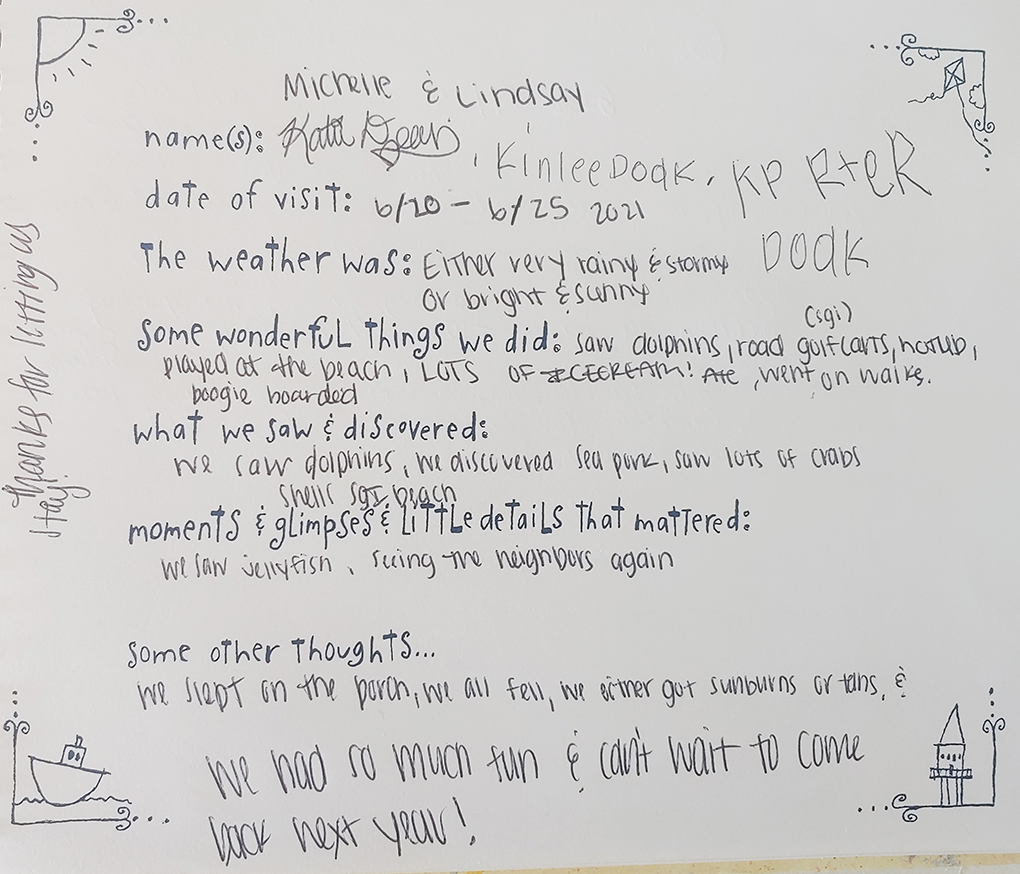 Michelle & Lindsay
name(s): Kata , Kinlee Dodk, KP
date of visit: 6/20 - 6/25 2021
Dodk
The weather was: Either very rainy & stormy
or bright & sunny
(sgi)
some wonderful things we did: saw dolphins, road golfcarts, hotub,
played at the beach, LOTS OF ICECREAM! Ate, went on walks.
boogie boarded
what we saw & discovered:
we saw dolphins, we discovered sea pork, saw lots of crabs
shells sgi beach
moments & glimpses & little details that mattered:
we saw jellyfish, seeing the neighbors again
some other thoughts...
we slept on the porch, we all fell, we either got sunburns or tans, &
we had so much fun & can't wait to come
back next year!
thanks for letting us
stay!